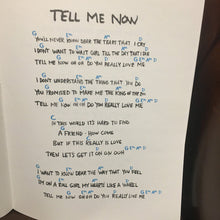 TELL ME NOW
G Em Am D
YOU'LL NEVER KNOW DEAR THE TEARS THAT I CRY
G Em Am D
I DON'T WANT TO WAIT GIRL TILL THE DAY THAT I DIE
G Em Am D G Em Am D
TELL ME NOW OH OH DO YOU REALLY LOVE ME
G Em Am D
I DON'T UNDERSTAND THE THINGS THAT YOU DO
G Em Am D
YOU PROMISED TO MAKE ME THE KING OF THE
G Em Am D G Em Am D
TELL ME NOW OH OH DO YOU REALLY LOVE ME
C G
IN THIS WORLD IT'S HARD TO FIND
C G
A FRIEND - HOW COME
C G
BUT IF THIS REALLY IS LOVE
D G Em Am D
THEN LET'S GET IT ON ON OOH
G Em Am D
I WANT TO KNOW DEAR THE WAY THAT YOU FEEL
G Em Am D
I'M ON A RAIL GIRL MY HEARTS LIKE A WHEEL
G Em Am D G Em Am D
TELL ME NOW OH OH DO YOU REALLY LOVE ME